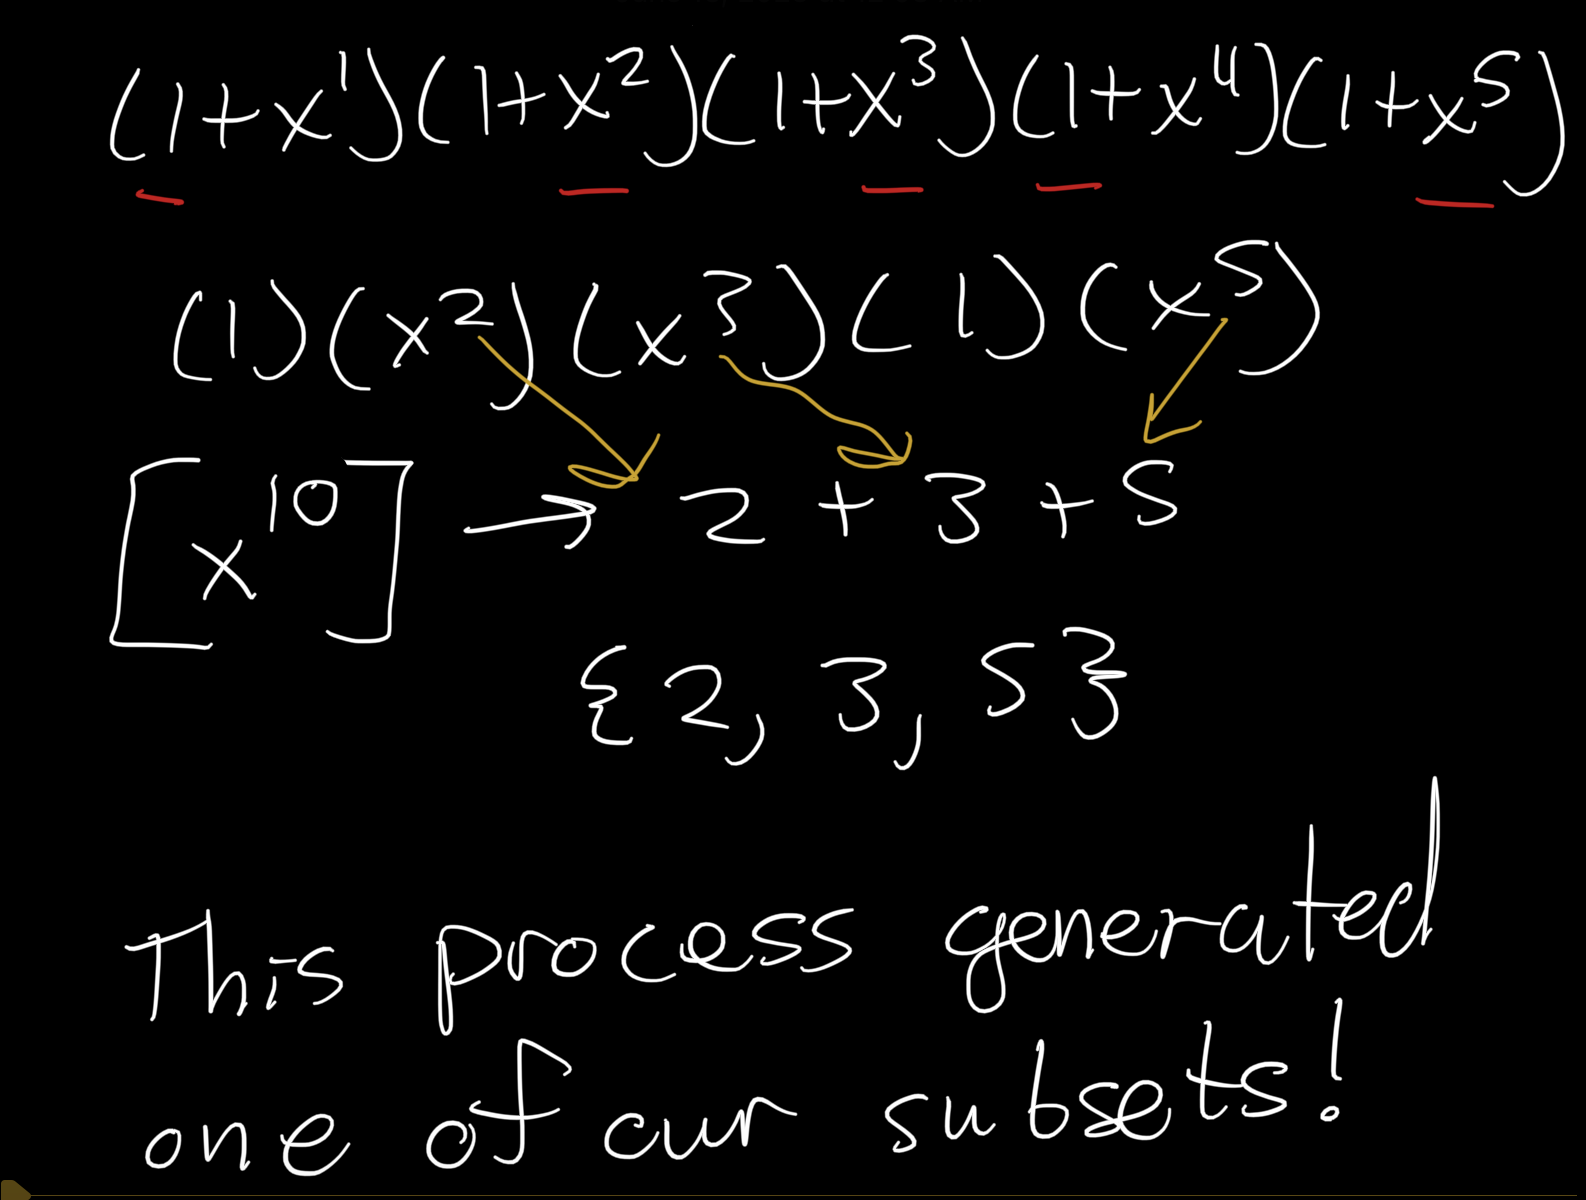 (1+x¹)(1+x²)(1+x³)(1+x⁴)(1+x⁵)
(1)(x²)(x³)(1)(x⁵)
[x¹⁰] → 2 + 3 + 5
{2, 3, 5}
This process generated
one of our subsets!